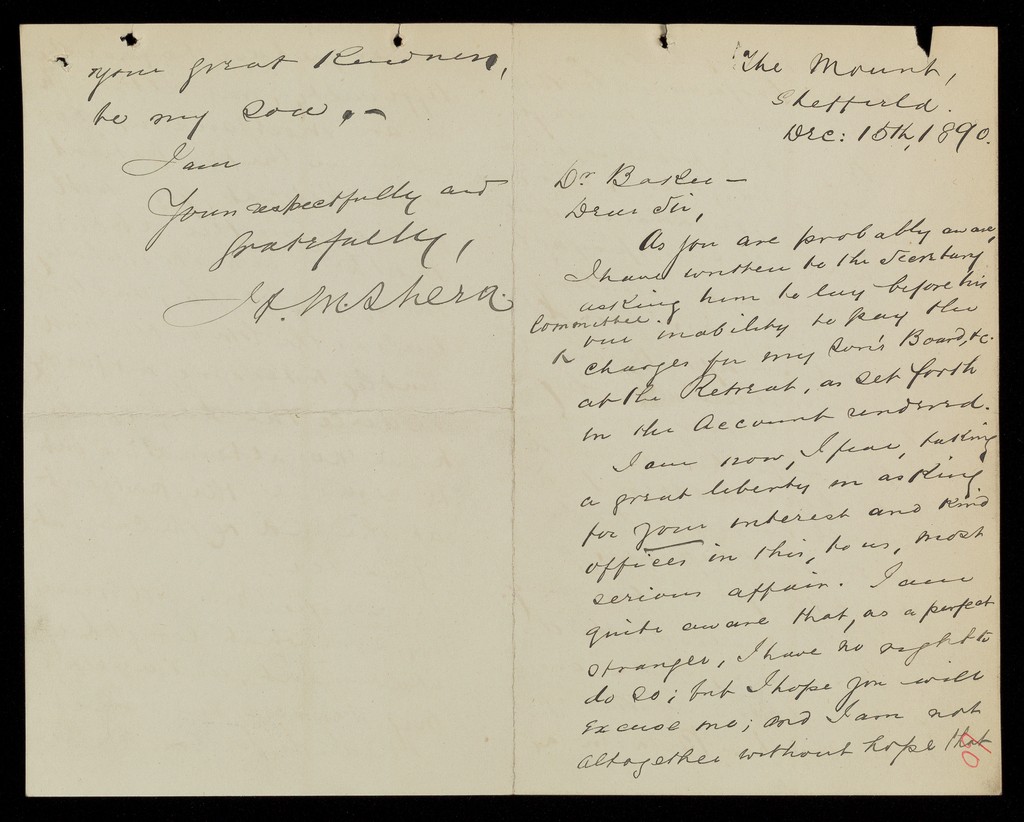 The Mount,
Sheffield.
Dec: 15th, 1890.
Dr Baker —
Dear Sir,
As you are probably aware,
I have written to the Secretary
asking him to lay before his
Committee
our inability to pay the
charges for my son's Board, &c.
at the Retreat, as set forth
in the Account rendered.
I am now, I fear, taking
a great liberty in asking
for your interest and kind
offices in this, to us, most
serious affair. I am
quite aware that, as a perfect
stranger, I have no right to
do so; but I hope you will
excuse me; and I am not
altogether without hope that
your great kindness,
to my son. —
I am
Yours respectfully and
gratefully,
M. Shera.